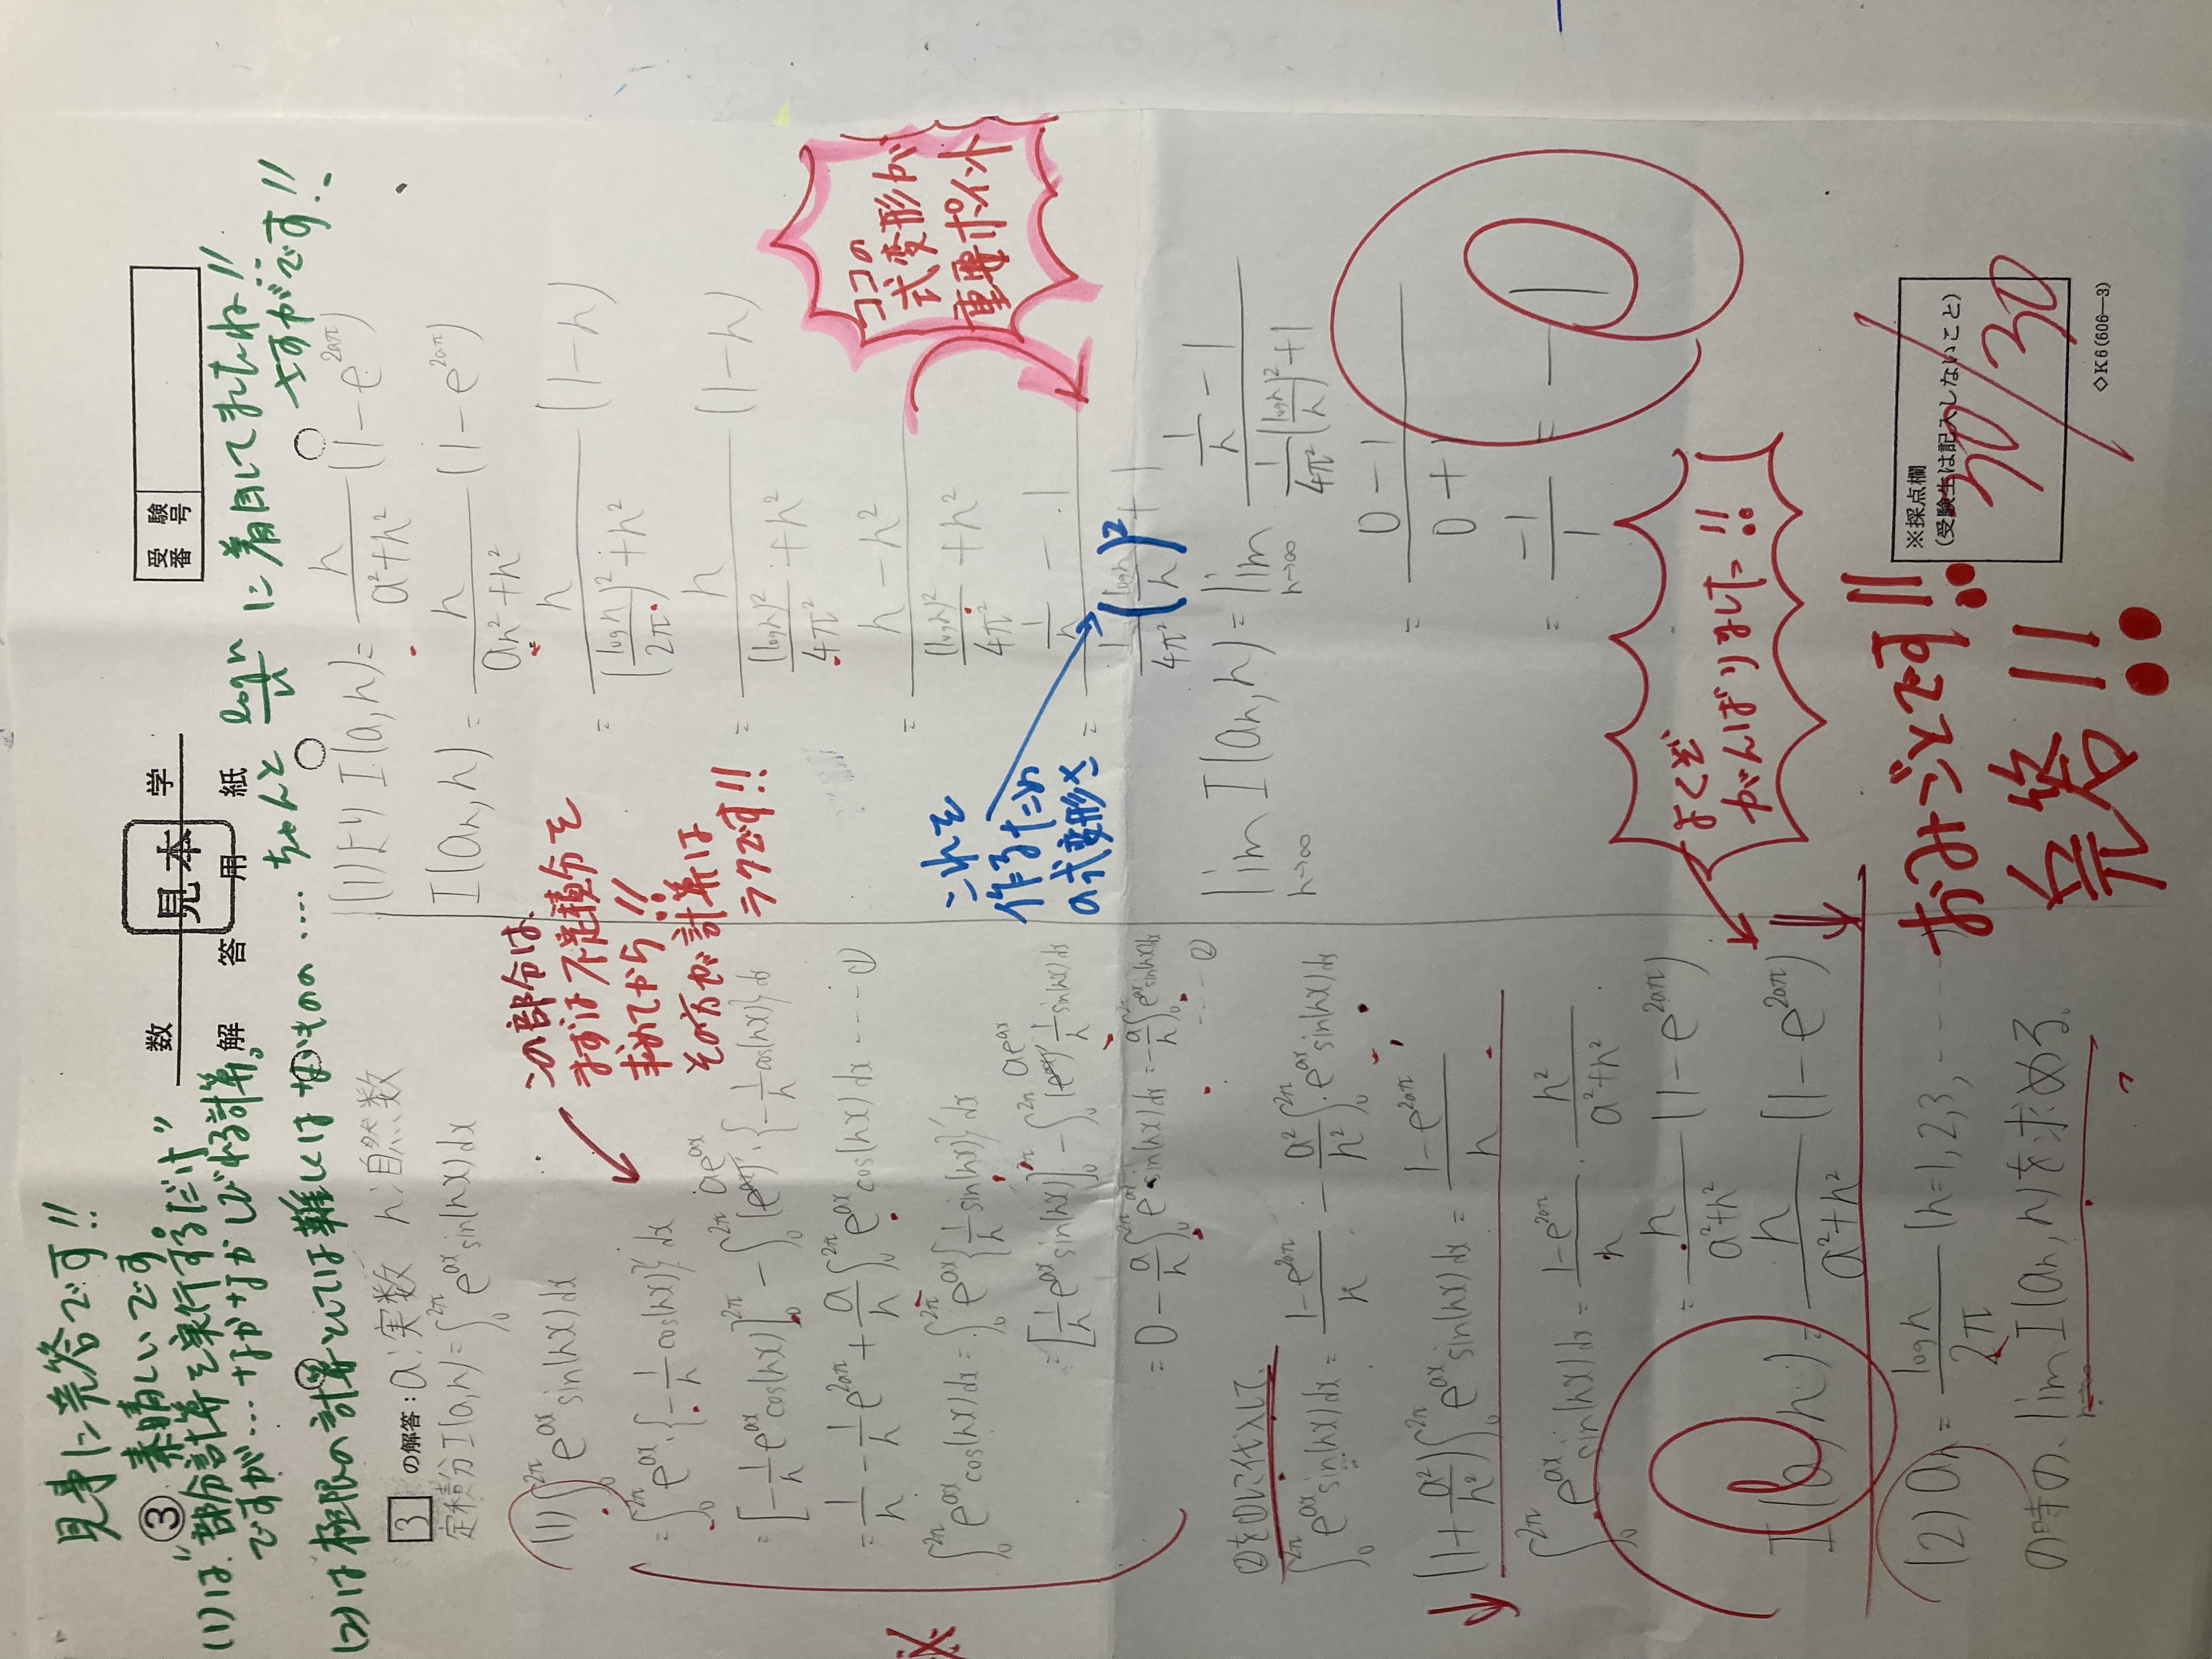 見事に完答です!!
③ 素晴しいです。
(1)は"部分計算を実行するだけ"
ですが…なかなかしびれる計算。
(2)は極限の計算としては難しくはないものの……ちゃんと logn/n に着目してましたね!!
さすがです!!
数 学
見本
解 答 用 紙
受験番号
3 の解答: a:実数 n:自然数
定積分I(a,n)=∫₀^{2π} e^{ax} sin(nx)dx
(1) ∫₀^{2π} e^{ax} sin(nx)dx
=∫₀^{2π} e^{ax}{-1/n cos(nx)}'dx
=[-1/n e^{ax} cos(nx)]₀^{2π} - ∫₀^{2π} ae^{ax}·{-1/n cos(nx)}dx
=1/n - 1/n e^{2aπ} + a/n ∫₀^{2π} e^{ax} cos(nx)dx ----①
∫₀^{2π} e^{ax} cos(nx)dx=∫₀^{2π} e^{ax}{1/n sin(nx)}'dx
=[1/n e^{ax} sin(nx)]₀^{2π} - ∫₀^{2π} ae^{ax} 1/n sin(nx)dx
=0 - a/n ∫₀^{2π} e^{ax} sin(nx)dx = -a/n ∫₀^{2π} e^{ax} sin(nx)dx
----②
②を①に代入して、
∫₀^{2π} e^{ax} sin(nx)dx = (1-e^{2aπ})/n - a²/n² ∫₀^{2π} e^{ax} sin(nx)dx
(1+a²/n²)∫₀^{2π} e^{ax} sin(nx)dx = (1-e^{2aπ})/n
∫₀^{2π} e^{ax} sin(nx)dx = (1-e^{2aπ})/n · n²/(a²+n²)
= n/(a²+n²) (1-e^{2aπ})
I(a,n)= n/(a²+n²) (1-e^{2aπ})
(2) an = logn/2π (n=1,2,3,……)
の時の、lim n→∞ I(an,n)を求める。
この部分は、
まずは不定積分を
求めてから!!
その方が計算は
ラクです!!
(1)より I(a,n)= n/(a²+n²) (1-e^{2aπ})
I(an,n) = n/(an²+n²) (1-e^{2anπ})
= n/((logn/2π)²+n²) (1-n)
= n/((logn)²/4π²+n²) (1-n)
= (n-n²)/((logn)²/4π²+n²)
= (1/n-1)/(1/4π² (logn/n)²+1)
ココの
式変形が
重要ポイント
これを
作るため
の式変形〆
lim n→∞ I(an,n) = lim n→∞ (1/n-1)/(1/4π² (logn/n)²+1)
= (0-1)/(0+1)
= -1/1 = -1
よくぞ
がんばりました!!
おみごとです!!
完答!!
※採点欄
(受験生は記入しないこと)
30/30
◇K6(606—3)